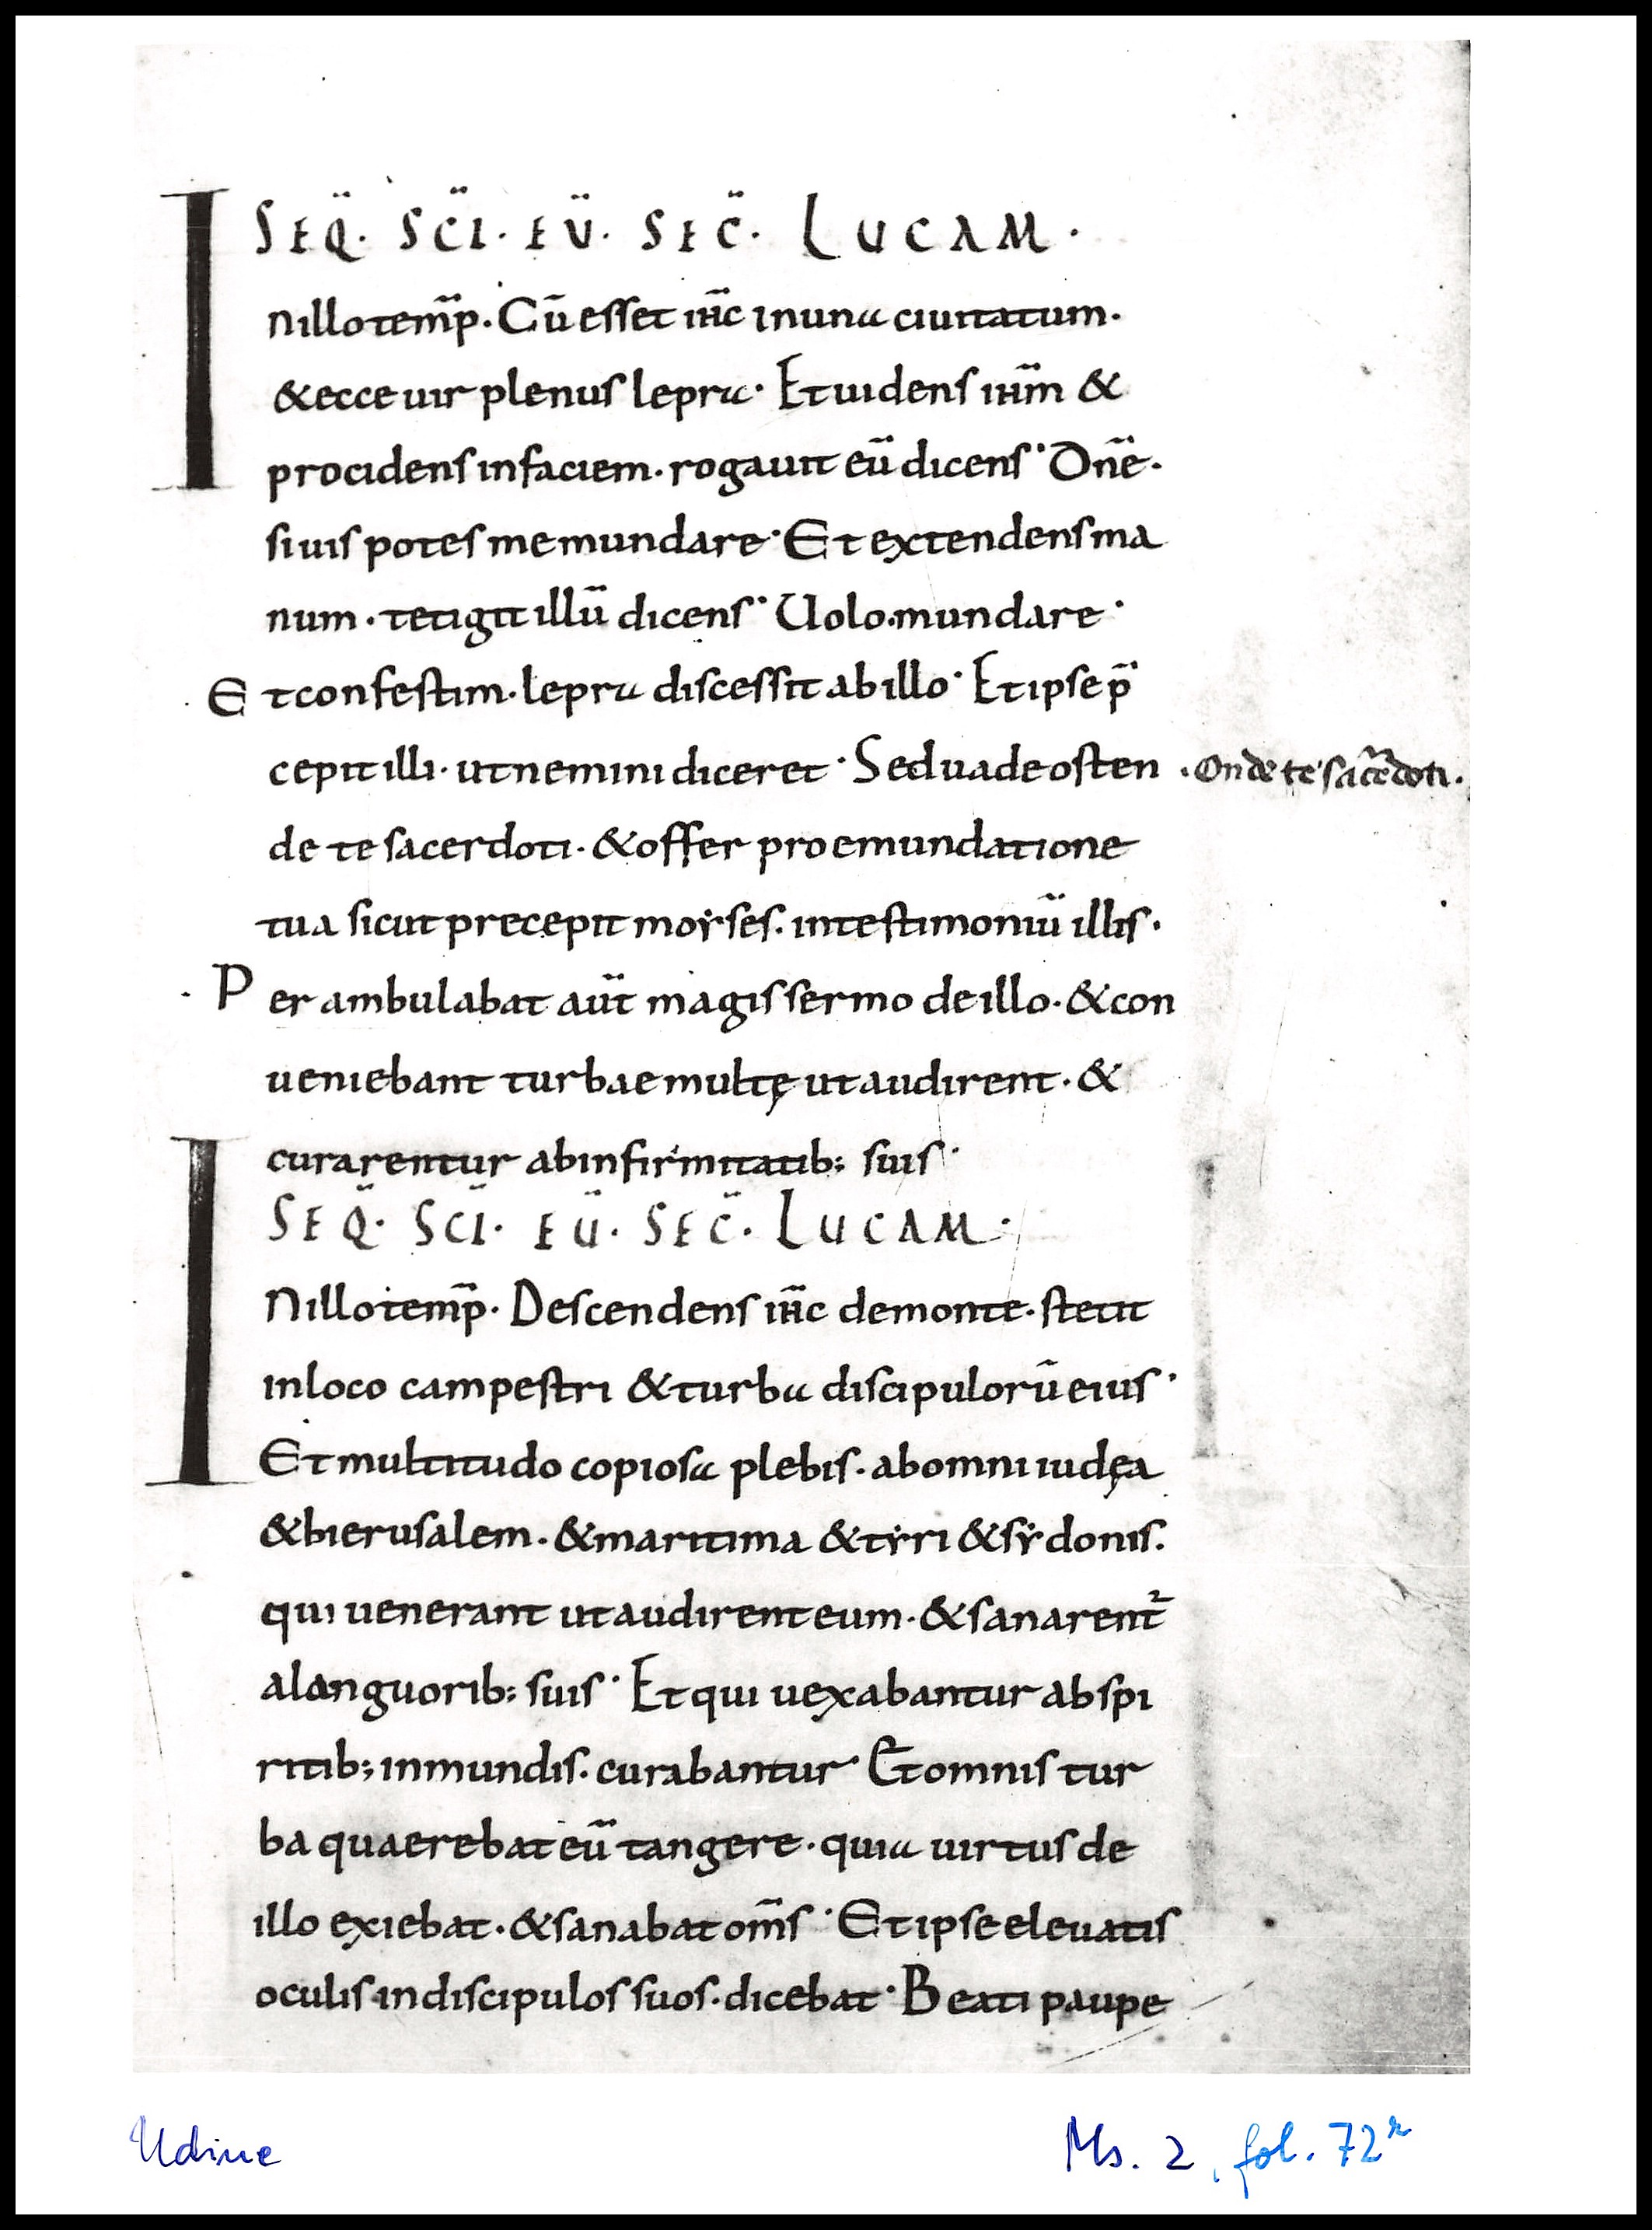 SEQ̈. SC̈I. EV̈. SEC̈. LUCAM.
I nillotem̄p. Cū esset ih̄c inuna ciuitatum.
& ecce uir plenus lepra. Et uidens ih̄m &
procidens infaciem. rogauit eū dicens. Dn̄e.
siuis potes memundare. Et extendens ma
num. tetigit illū dicens. Uolo. mundare.
Et confestim. lepra discessit ab illo. Et ipse p̄
cepit illi. ut nemini diceret. Sed uade osten
.Onde te sacerdoti.
de te sacerdoti. & offer pro emundatione
tua sicut precepit moẏses. intestimoniū illis.
Per ambulabat aūt magis sermo deillo. & con
ueniebant turbae multę ut audirent. &
curarentur abinfirmitatib; suis.
SEQ̈. SC̈I. EÜ. SEC̈. LUCAM.
I Nillotem̄p. Descendens ih̄c demonte. stetit
inloco campestri & turba discipulorū eius.
Et multitudo copiosa plebis. abomni iudęa
& hierusalem. & maritima & tẏri & sẏdonis.
qui uenerant ut audirent eum. & sanarent̄
alanguorib; suis. Et qui uexabantur ab spi
ritib; inmundis. curabantur. Et omnis tur
ba quaerebat eū tangere. quia uirtus de
illo exiebat. & sanabat om̄s. Et ipse eleuatis
oculis indiscipulos suos. dicebat. Beati paupe
Udine
Ms. 2, fol. 72r